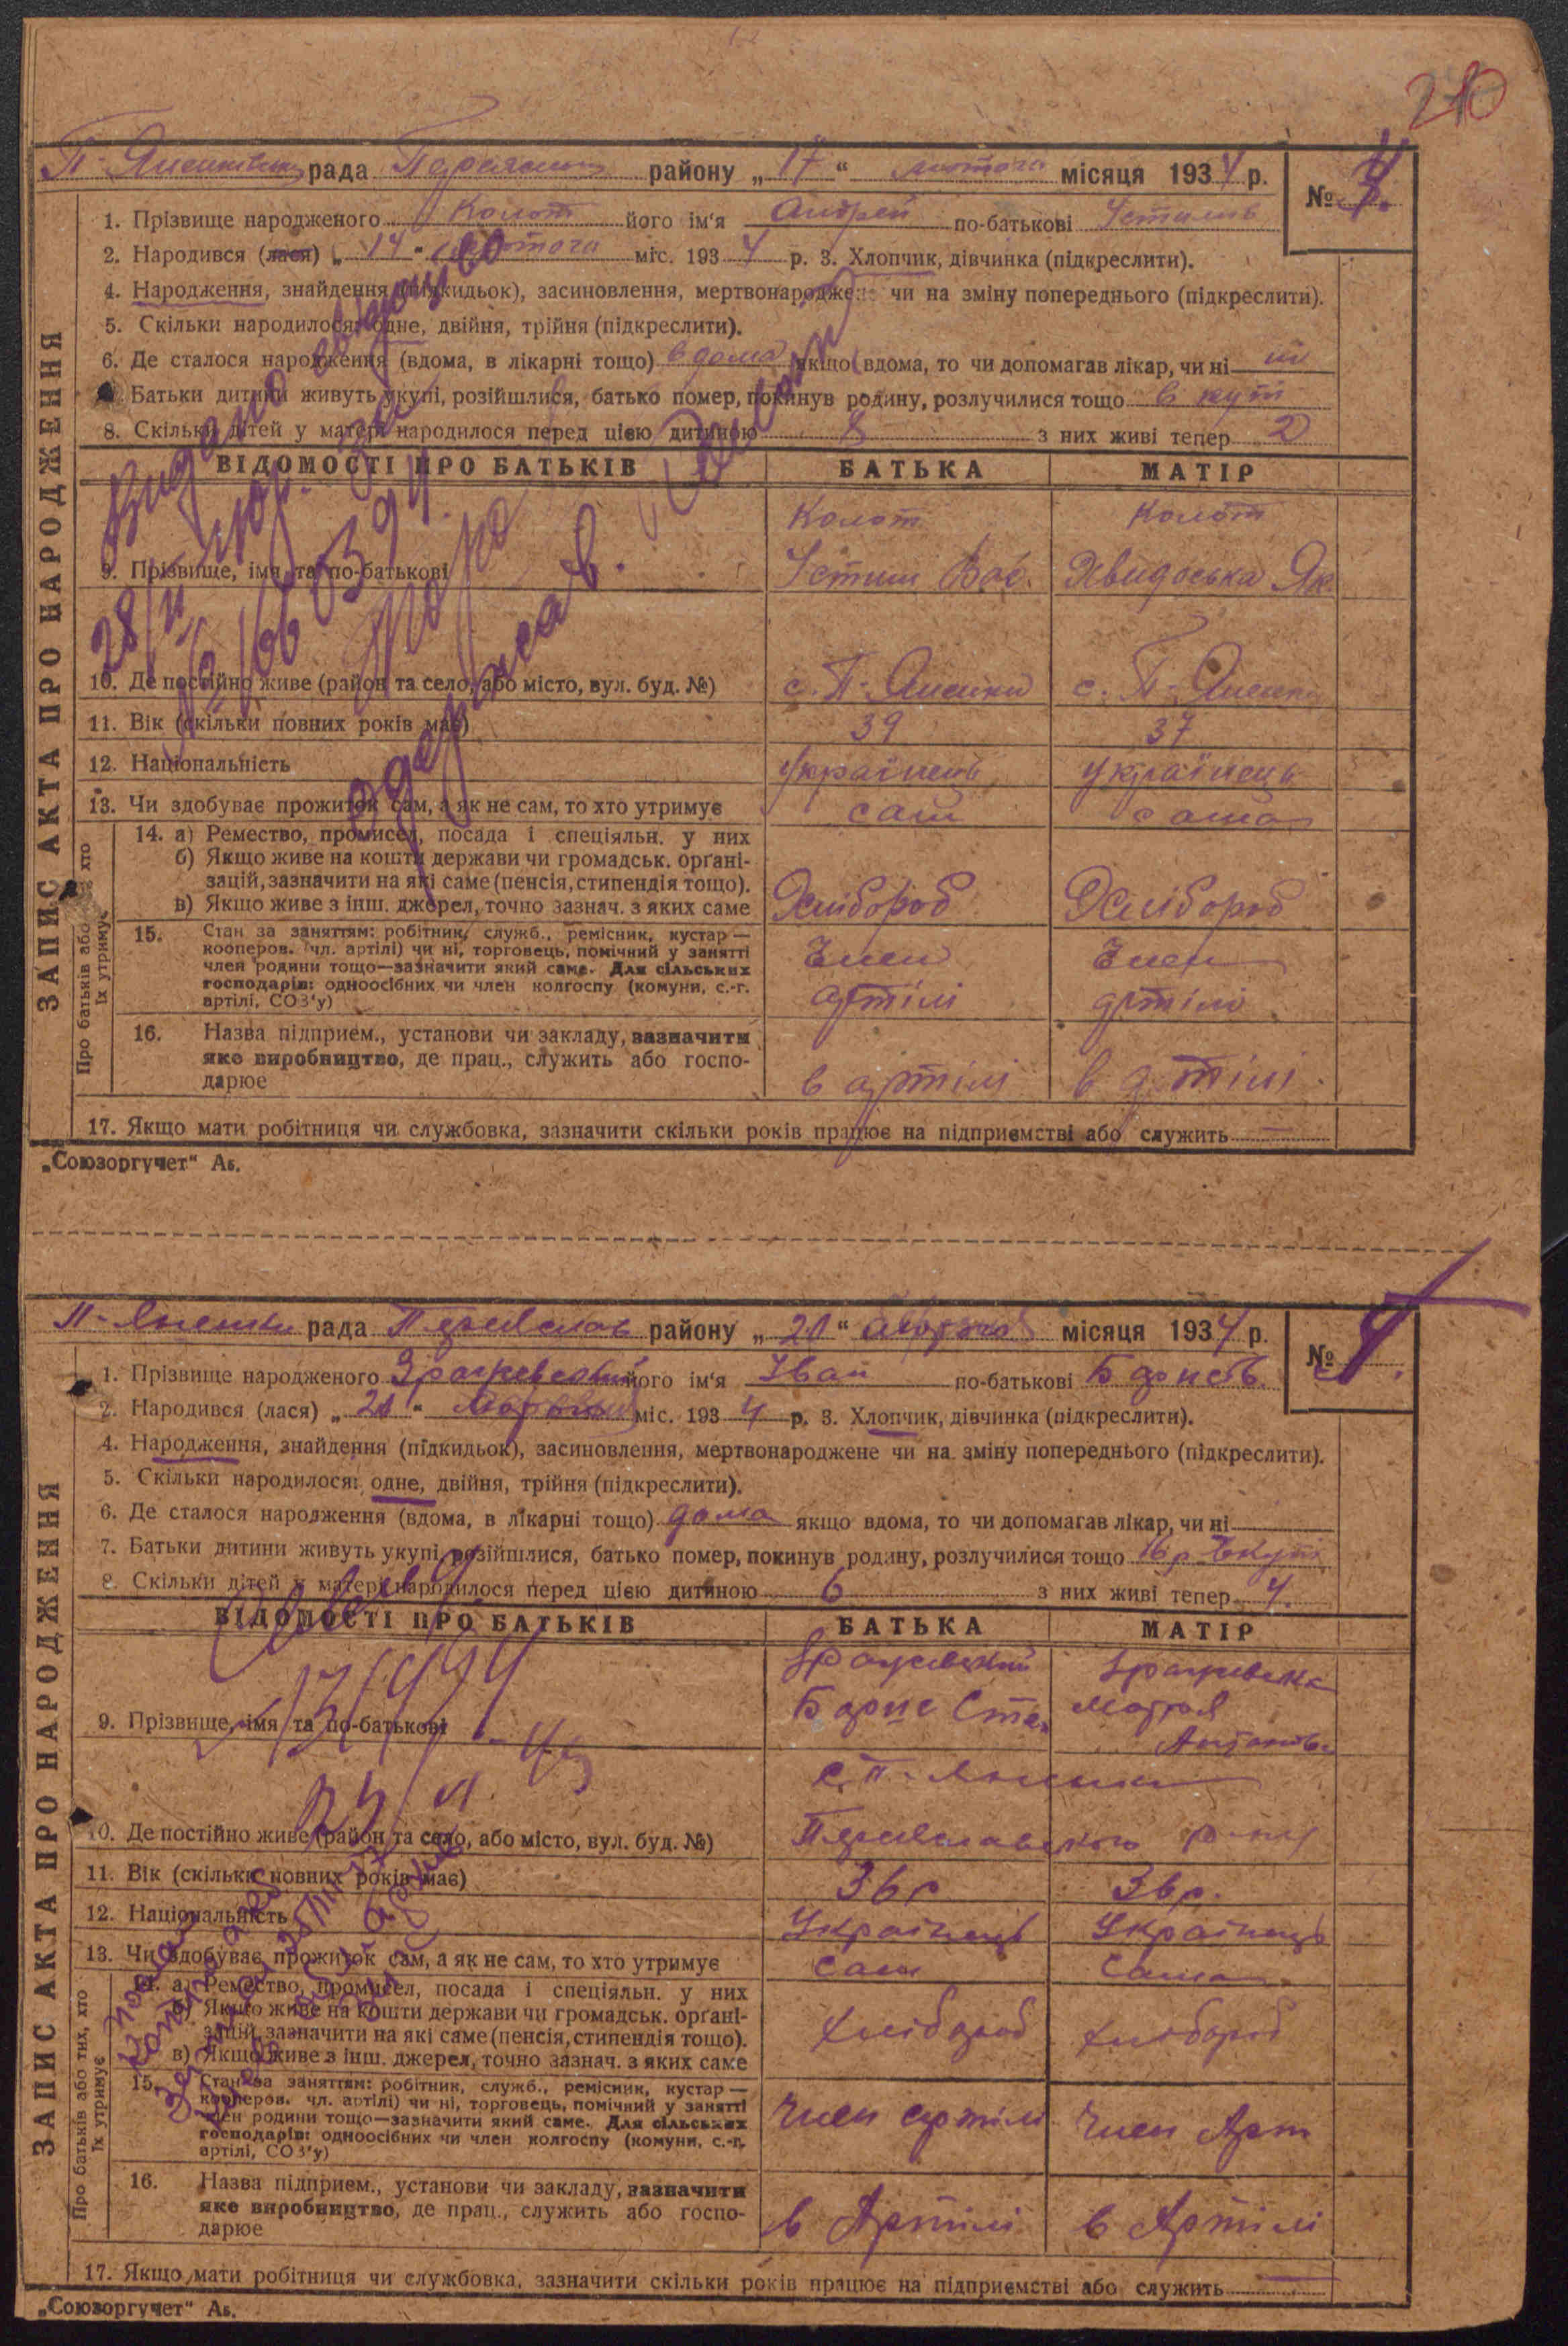 210
рада района „ 17 “ лютого місяця 1934 р.
№ 3.
1. Прізвище народженого Колот його ім'я Андрей по-батькові
2. Народився (лася) „ 14 “ лютого міс. 1934 р. 3. Хлопчик, дівчинка (підкреслити).
4. Народження, знайдення (підкидьок), засиновлення, мертвонароджене чи на зміну попереднього (підкреслити).
5. Скільки народилося: одне, двійня, трійня (підкреслити).
6. Де сталося народження (вдома, в лікарні тощо) вдома якщо вдома, то чи допомагав лікар, чи ні ні
Батьки дитини живуть укупі, розійшлися, батько помер, покинув родину, розлучилися тощо в купі
8. Скільки дітей у матері народилося перед цією дитиною 8 з них живі тепер 2
ВІДОМОСТІ ПРО БАТЬКІВ БАТЬКА МАТІР
Колот Колот
9. Прізвище, імя та по-батькові Устим Вас. Хвидоська Як.
10. Де постійно живе (район та село, або місто, вул. буд. №) с. П- с. П-
11. Вік (скільки повних років має) 39 37
12. Національність українець українець
13. Чи здобуває прожиток сам, а як не сам, то хто утримує сам сама
14. а) Ремество, промисел, посада і спеціяльн. у них
б) Якщо живе на кошти держави чи громадськ. орґані-
зацій, зазначити на які саме (пенсія, стипендія тощо).
в) Якщо живе з інш. джерел, точно зазнач. з яких саме Хлібороб Хлібороб
15. Стан за заняттям: робітник, служб., ремісник, кустар —
кооперов. (чл. артілі) чи ні, торговець, помічний у занятті
член родини тощо—зазначити який саме. Для сільських
господарів: одноосібних чи член колгоспу (комуни, с.-г.
артілі, СОЗ'у)
Член артілі Член артілі
16. Назва підприєм., установи чи закладу, зазначити
яке виробництво, де прац., служить або госпо-
дарює в артілі в артілі
17. Якщо мати робітниця чи службовка, зазначити скільки років працює на підприємстві або служить —
„Союзоргучет“ А5.
ЗАПИС АКТА ПРО НАРОДЖЕННЯ
Про батьків або тих, хто їх утримує
Видано свідоцтво
28/II
одержав.
рада района „ 21 “ місяця 1934 р.
№ 4.
1. Прізвище народженого його ім'я Іван по-батькові
2. Народився (лася) „ 21 “ міс. 1934 р. 3. Хлопчик, дівчинка (підкреслити).
4. Народження, знайдення (підкидьок), засиновлення, мертвонароджене чи на зміну попереднього (підкреслити).
5. Скільки народилося: одне, двійня, трійня (підкреслити).
6. Де сталося народження (вдома, в лікарні тощо) дома якщо вдома, то чи допомагав лікар, чи ні
7. Батьки дитини живуть укупі, розійшлися, батько помер, покинув родину, розлучилися тощо вкупі
8. Скільки дітей у матері народилося перед цією дитиною 6 з них живі тепер 4.
ВІДОМОСТІ ПРО БАТЬКІВ БАТЬКА МАТІР
9. Прізвище, імя та по-батькові Борис Мотря
10. Де постійно живе (район та село, або місто, вул. буд. №) Переяславського р-ну
11. Вік (скільки повних років має) 36 р 36 р.
12. Національність Українець Українець
13. Чи здобуває прожиток сам, а як не сам, то хто утримує сам сама
14. а) Ремество, промисел, посада і спеціяльн. у них
б) Якщо живе на кошти держави чи громадськ. орґані-
зацій, зазначити на які саме (пенсія, стипендія тощо).
в) Якщо живе з інш. джерел, точно зазнач. з яких саме хлібороб хлібороб
15. Стан за заняттям: робітник, служб., ремісник, кустар —
кооперов. чл. артілі) чи ні, торговець, помічний у занятті
член родини тощо—зазначити який саме. Для сільських
господарів: одноосібних чи член колгоспу (комуни, с.-г.
артілі, СОЗ'у)
Член артілі Член Арт
16. Назва підприєм., установи чи закладу, зазначити
яке виробництво, де прац., служить або госпо-
дарює в Артілі в Артілі
17. Якщо мати робітниця чи службовка, зазначити скільки років працює на підприємстві або служить —
„Союзоргучет“ А5.
ЗАПИС АКТА ПРО НАРОДЖЕННЯ
Про батьків або тих, хто їх утримує